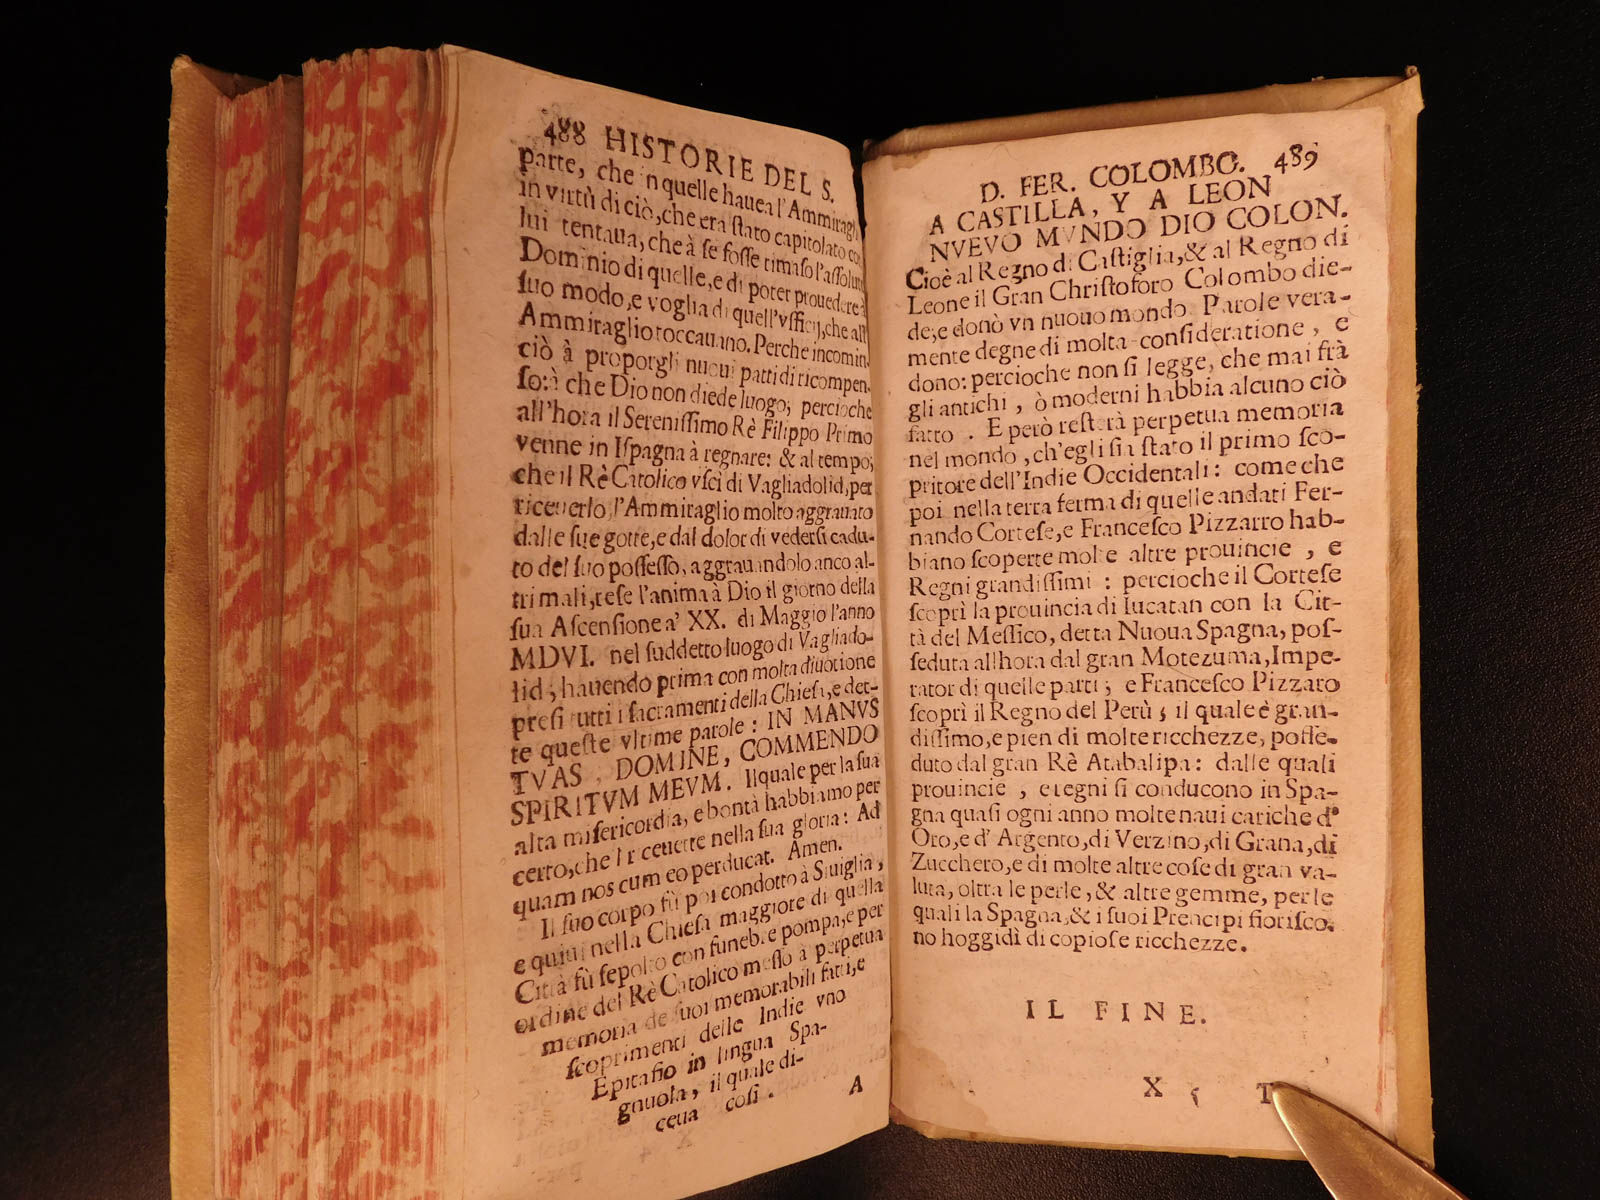 488 HISTORIE DEL S.
parte, che 'n quelle hauea l'Ammiragli
in virtù di ciò, che era stato capitolato co
lui tentaua, che à se fosse rimaso l'assolut
Dominio di quelle, e di poter prouedere à
suo modo, e voglia di quell'vfficij, che all'
Ammiraglio toccauano. Perche incomin
ciò à proporgli nuoui patti di ricompen-
so: à che Dio non diede luogo; percioche
all'hora il Serenissimo Rè Filippo Primo
venne in Ispagna à regnare: & al tempo,
che il Rè Catolico vscì di Vagliadolid, per
riceuerlo, l'Ammiraglio molto aggrauato
dalle sue gotte, e dal dolor di vedersi cadu-
to del suo possesso, aggrauandolo anco al-
tri mali, rese l'anima à Dio il giorno della
sua Ascensione a' XX. di Maggio l'anno
MDVI. nel suddetto luogo di Vagliado-
lid; hauendo prima con molta diuotione
presi tutti i sacramenti della Chiesa, e det-
te queste vltime parole: IN MANVS
TVAS, DOMINE, COMMENDO
SPIRITVM MEVM. Il quale per la sua
alta misericordia, e bontà habbiamo per
certo, che l riceuette nella sua gloria: Ad
quam nos cum eo perducat. Amen.
Il suo corpo fù poi condotto à Siuiglia,
e quiui nella Chiesa maggiore di quella
Città fù sepolto con funebre pompa, e per
ordine del Rè Catolico messo à perpetua
memoria de suoi memorabili fatti, e
scoprimenti delle Indie vno
Epitafio in lingua Spa-
gnuola, il quale di-
ceua così.
A
D. FER. COLOMBO. 489
A CASTILLA, Y A LEON
NVEVO MVNDO DIO COLON.
Cioè al Regno di Castiglia, & al Regno di
Leone il Gran Christoforo Colombo die-
de, e donò vn nuouo mondo. Parole vera-
mente degne di molta consideratione, e
dono: percioche non si legge, che mai frà
gli antichi, ò moderni habbia alcuno ciò
fatto. E però resterà perpetua memoria
nel mondo, ch'egli sia stato il primo sco-
pritore dell'Indie Occidentali: come che
poi nella terra ferma di quelle andati Fer-
nando Cortese, e Francesco Pizzarro hab-
biano scoperte molte altre prouincie, e
Regni grandissimi: percioche il Cortese
scoprì la prouincia di Iucatan con la Cit-
tà del Messico, detta Nuoua Spagna, pos-
seduta all'hora dal gran Motezuma, Impe-
rator di quelle parti; e Francesco Pizzaro
scoprì il Regno del Perù; il quale è gran-
dissimo, e pien di molte ricchezze, posse-
duto dal gran Rè Atabalipa: dalle quali
prouincie, e regni si conducono in Spa-
gna quasi ogni anno molte naui cariche d'
Oro, e d'Argento, di Verzino, di Grana, di
Zucchero, e di molte altre cose di gran va-
luta, oltra le perle, & altre gemme, per le
quali la Spagna, & i suoi Prencipi fiorisco-
no hoggidì di copiose ricchezze.
IL FINE.
X 5 T